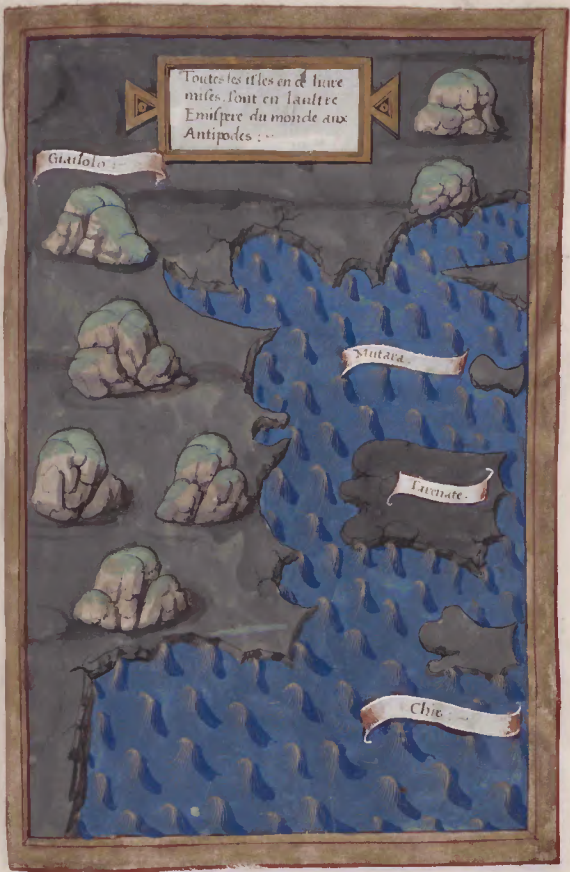 Toutes les isles en ce livre
mises. sont en laultre
Emispere du monde aux
Antipodes :~
Giailolo :~
Mutara.
Tarenate.
Chie :~